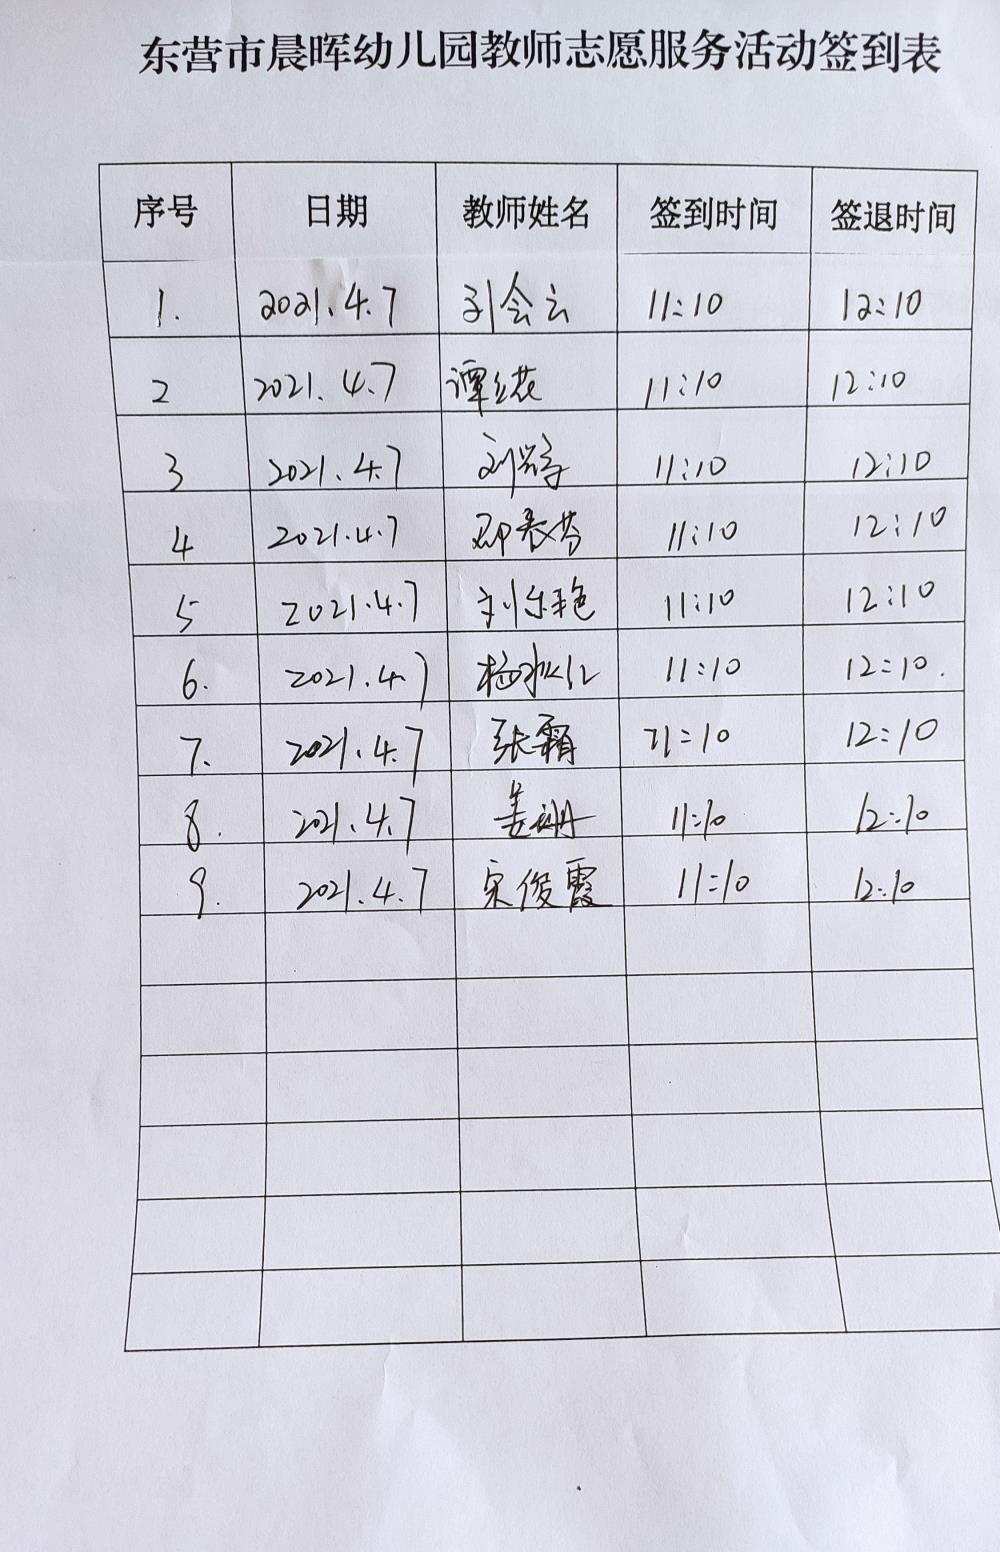 东营市晨晖幼儿园教师志愿服务活动签到表
序号 日期 教师姓名 签到时间 签退时间
1. 2021.4.7 会云 11:10 12:10
2 2021.4.7 谭 花 11:10 12:10
3 2021.4.7 刘 11:10 12:10
4 2021.4.7 11:10 12:10
5 2021.4.7 刘 艳 11:10 12:10
6. 2021.4.7 杨 11:10 12:10.
7. 2021.4.7 张霜 11:10 12:10
8. 2021.4.7 姜 11:10 12:10
9. 2021.4.7 宋俊霞 11:10 12:10